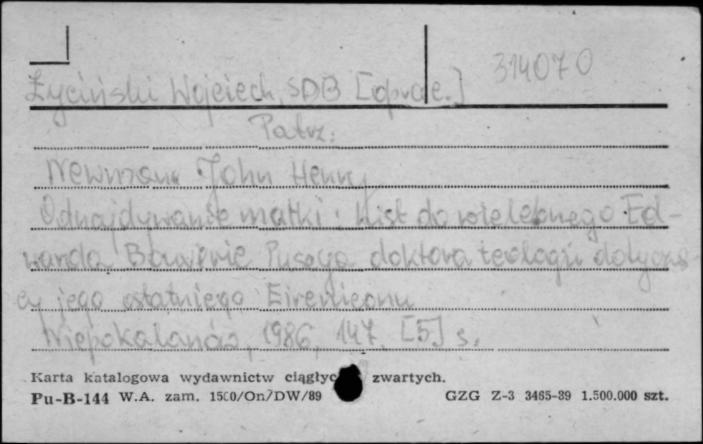 314070
Życiński Wojciech, SDB [oprac.]
Patrz:
Newman John Henry
Odnajdywanie matki : List do wielebnego Ed-
warda Bouverie Puseya doktora teologii dotyczą-
cy jego ostatniego Eirenikonu
Niepokalanów, 1986, 147, [5] s.
Karta katalogowa wydawnictw ciągłych zwartych.
Pu-B-144 W.A. zam. 1500/On/DW/89 GZG Z-3 3465-39 1.500.000 szt.